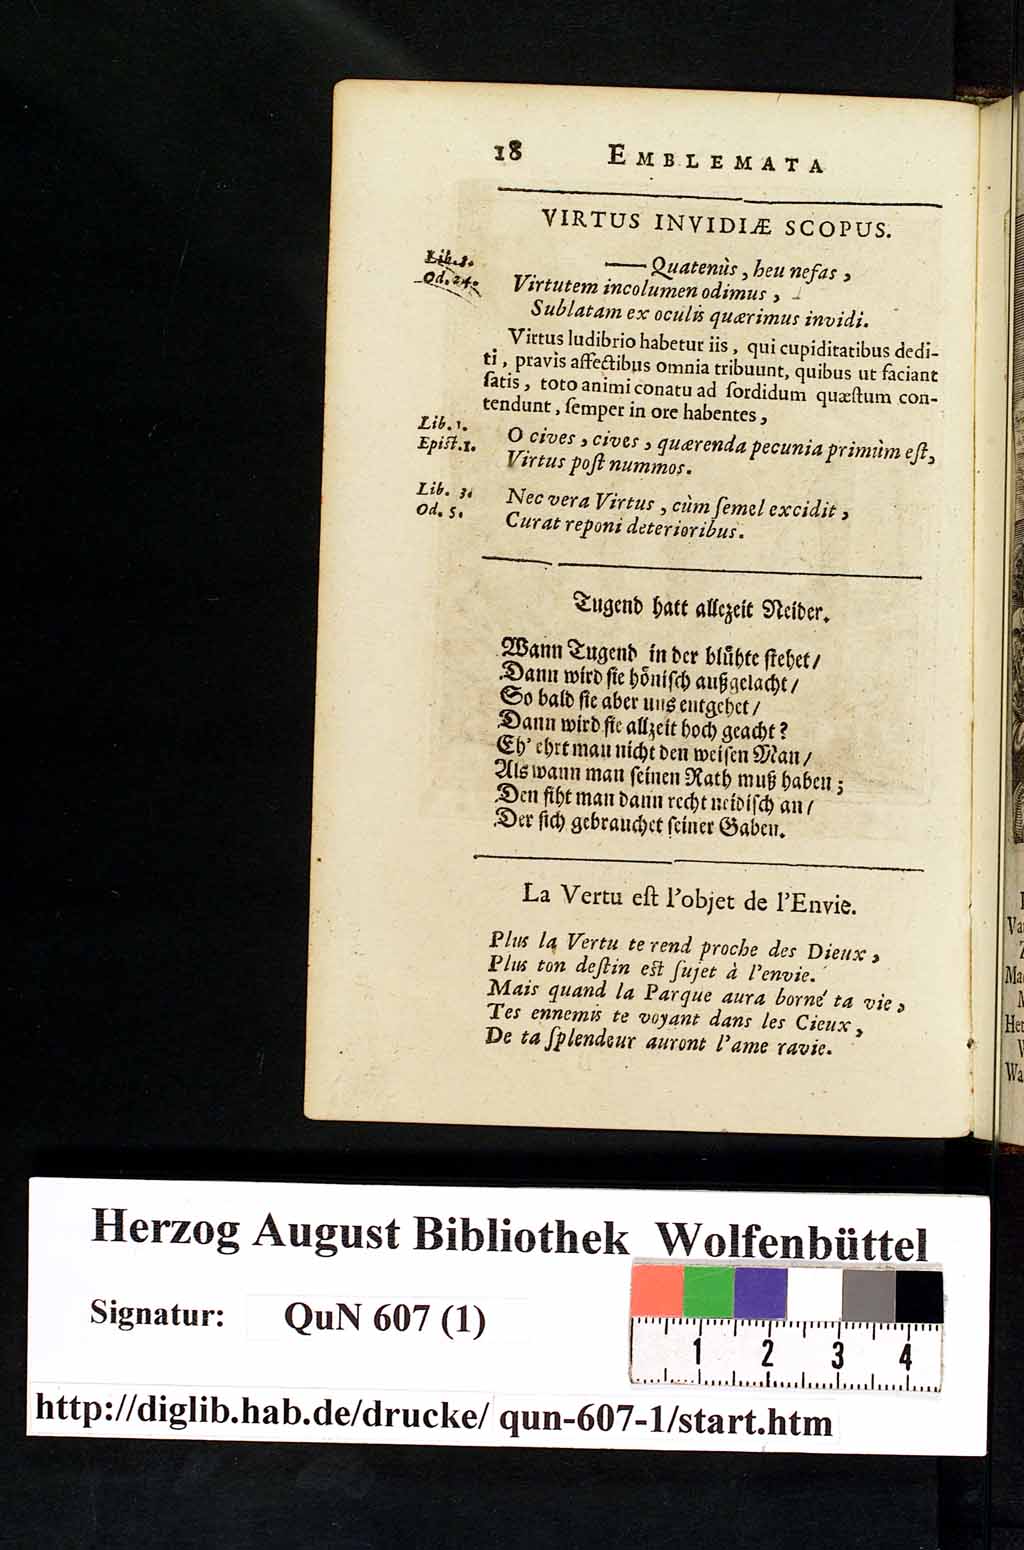 18 EMBLEMATA
VIRTUS INVIDIÆ SCOPUS.
Lib. 3.
Od. 24.
—— Quatenùs, heu nefas,
Virtutem incolumen odimus,
Sublatam ex oculis quærimus invidi.
Virtus ludibrio habetur iis, qui cupiditatibus dedi-
ti, pravis affectibus omnia tribuunt, quibus ut faciant
ſatis, toto animi conatu ad ſordidum quæſtum con-
tendunt, ſemper in ore habentes,
Lib. 1.
Epiſt. 1.
O cives, cives, quærenda pecunia primùm eſt,
Virtus poſt nummos.
Lib. 3.
Od. 5.
Nec vera Virtus, cùm ſemel excidit,
Curat reponi deterioribus.
Tugend hatt allezeit Neider.
Wann Tugend in der bluͤhte ſtehet/
Dann wird ſie hoͤniſch außgelacht/
So bald ſie aber uns entgehet/
Dann wird ſie allzeit hoch geacht?
Eh' ehrt man nicht den weiſen Man/
Als wann man ſeinen Rath muß haben;
Den ſiht man dann recht neidiſch an/
Der ſich gebrauchet ſeiner Gaben.
La Vertu eſt l'objet de l'Envie.
Plus la Vertu te rend proche des Dieux,
Plus ton deſtin eſt ſujet à l'envie.
Mais quand la Parque aura borné ta vie,
Tes ennemis te voyant dans les Cieux,
De ta ſplendeur auront l'ame ravie.
Va
Ma
Het
Wa
Herzog August Bibliothek Wolfenbüttel
Signatur: QuN 607 (1)
1 2 3 4
http://diglib.hab.de/drucke/ qun-607-1/start.htm